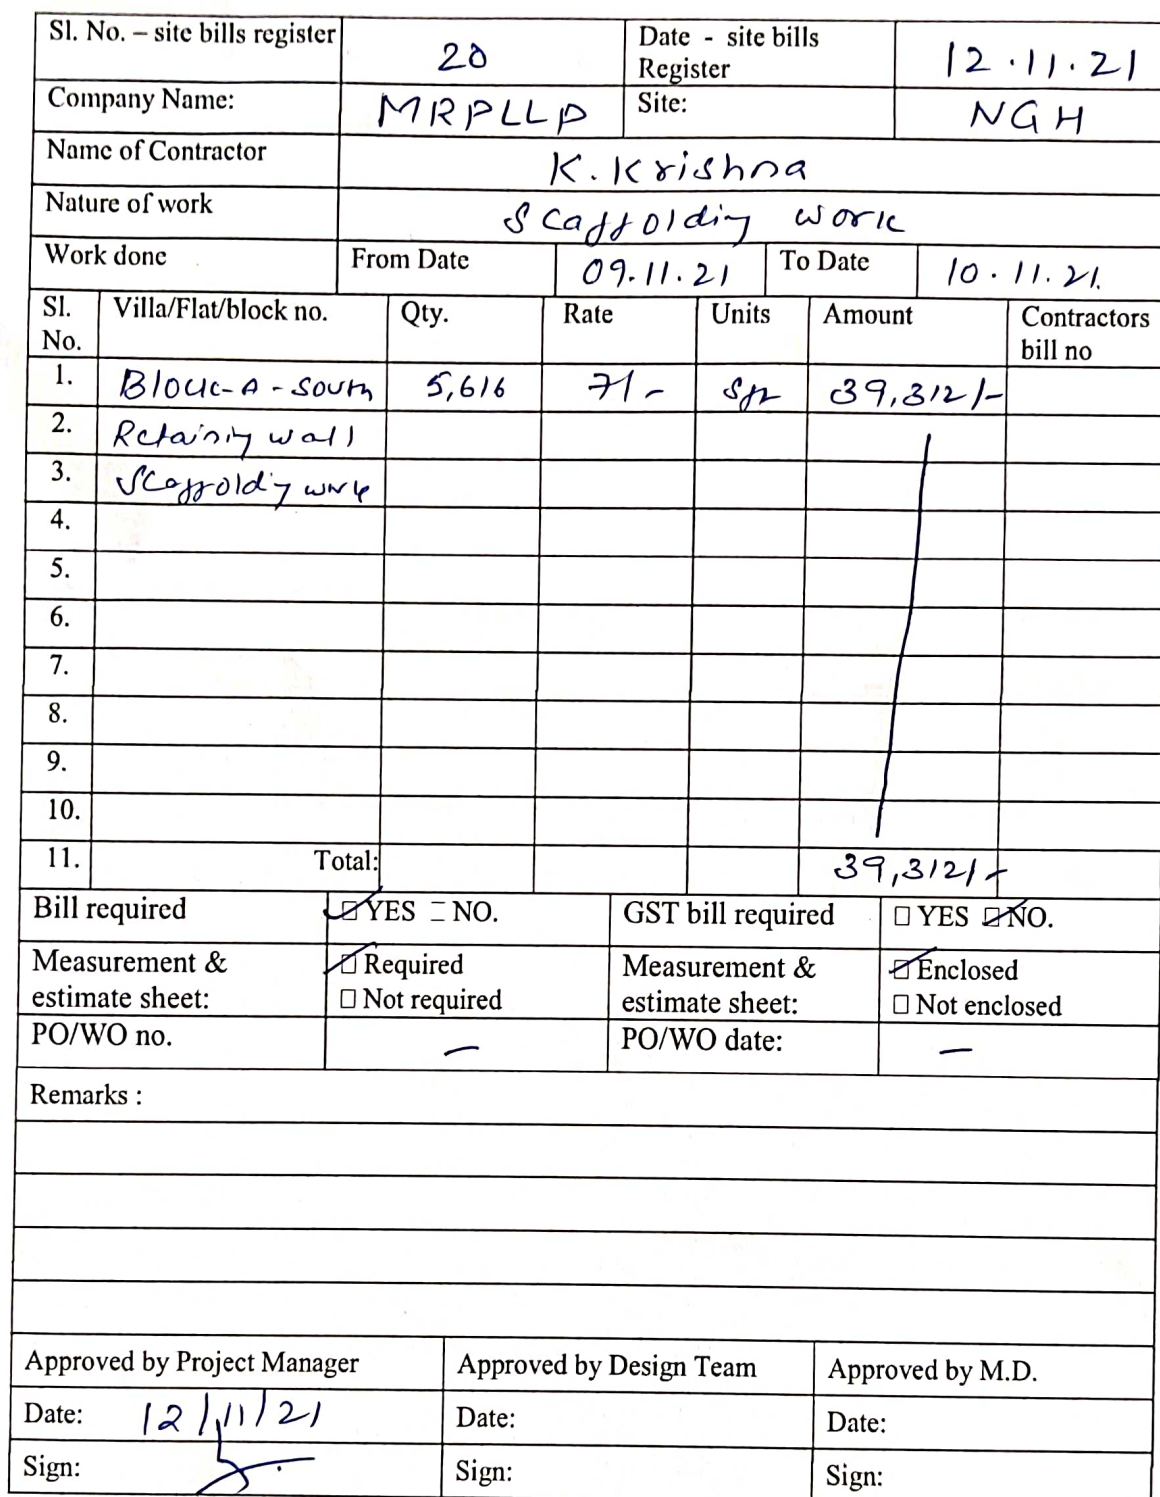 Sl. No. – site bills register 20 Date - site bills Register 12.11.21
Company Name: MRPLLP Site: NGH
Name of Contractor K. Krishna
Nature of work Scaffolding work
Work done From Date 09.11.21 To Date 10.11.21.
Sl. No. Villa/Flat/block no. Qty. Rate Units Amount Contractors bill no
1. Block-A-South 5,616 7/- Sft 39,312/-
2. Retaining wall
3. Scaffolding work
4.
5.
6.
7.
8.
9.
10.
11. Total: 39,312/-
Bill required ☑ YES ☐ NO. GST bill required ☐ YES ☑ NO.
Measurement & estimate sheet: ☑ Required ☐ Not required Measurement & estimate sheet: ☑ Enclosed ☐ Not enclosed
PO/WO no. – PO/WO date: –
Remarks :
Approved by Project Manager Approved by Design Team Approved by M.D.
Date: 12/11/21 Date: Date:
Sign: Sign: Sign: